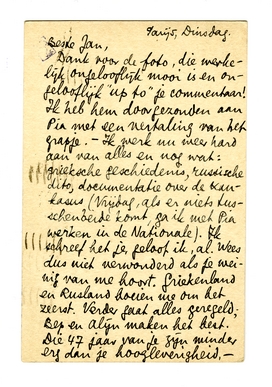 Parijs, Dinsdag.
Beste Jan,
Dank voor de foto, die werke-
lijk ongelooflijk mooi is en on-
gelooflijk "up to" je commentaar!
Ik heb hem doorgezonden aan
Pia met een vertaling van het
grapje. - Ik werk nu weer hard
aan van alles en nog wat:
grieksche geschiedenis, russische
dito, documentatie over de Kau-
kasus (Vrijdag, als er niets tus-
schenbeide komt, ga ik met Pia
werken in de Nationale). Ik
schreef het je, geloof ik, al. Wees
dus niet verwonderd als je wei-
nig van me hoort. Griekenland
en Rusland boeien me om het
zeerst. Verder gaat alles geregeld.
Bep en Alijn maken het best.
Die 47 jaar van je zijn minder
erg dan je hoogleverigheid. -